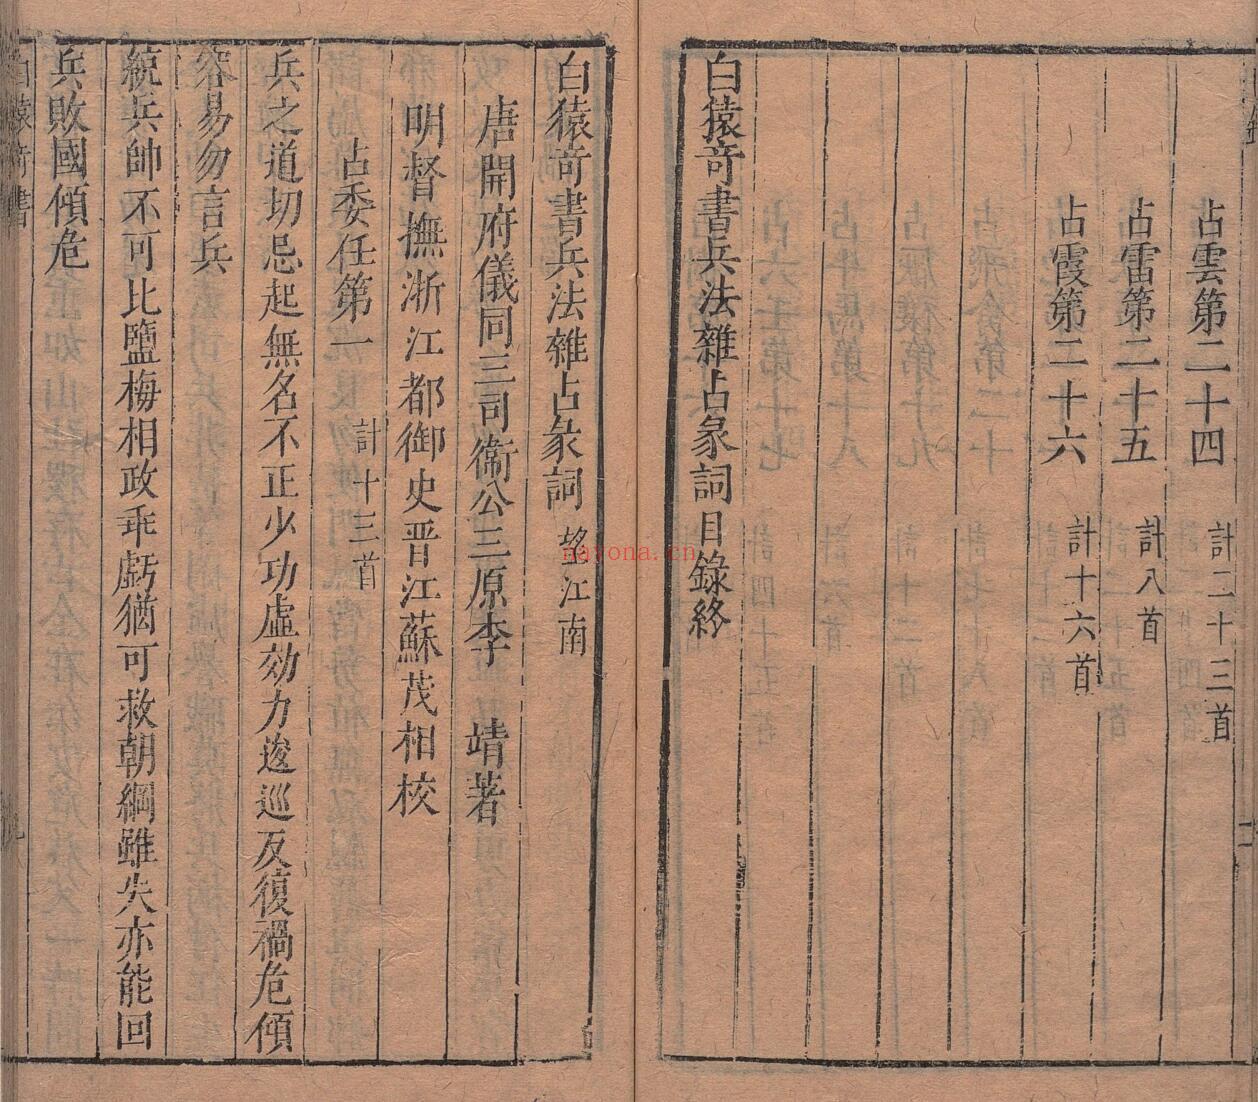 占雲第二十四 計二十三首
占雷第二十五 計八首
占霞第二十六 計十六首
白猿奇書兵法雜占彖詞目錄終
白猿奇書兵法雜占彖詞 望江南
唐開府儀同三司衞公三原李 靖著
明督撫浙江都御史晋江蘇茂相校
占委任第一 計十三首
兵之道切忌起無名不正少功虛効力逡巡反復禍危傾
容易勿言兵
統兵帥不可比鹽梅相政乖虧猶可救朝綱雖失亦能回
兵敗國傾危
白猿奇書
nayona.cn